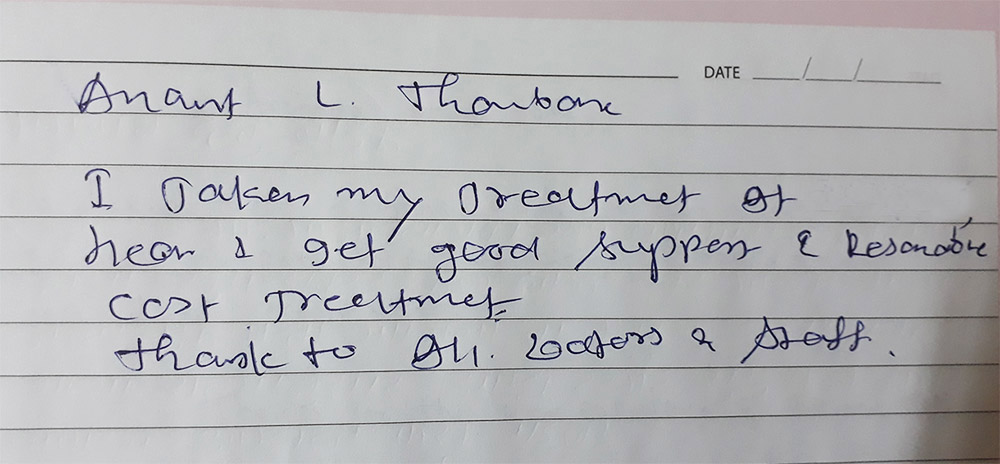 DATE __/__/__
Anant L. Thombare
I Taken my Treatmet at
hear & get good suppert & Resonable
cost Treetmet
thank to All. Doctors & Staff.